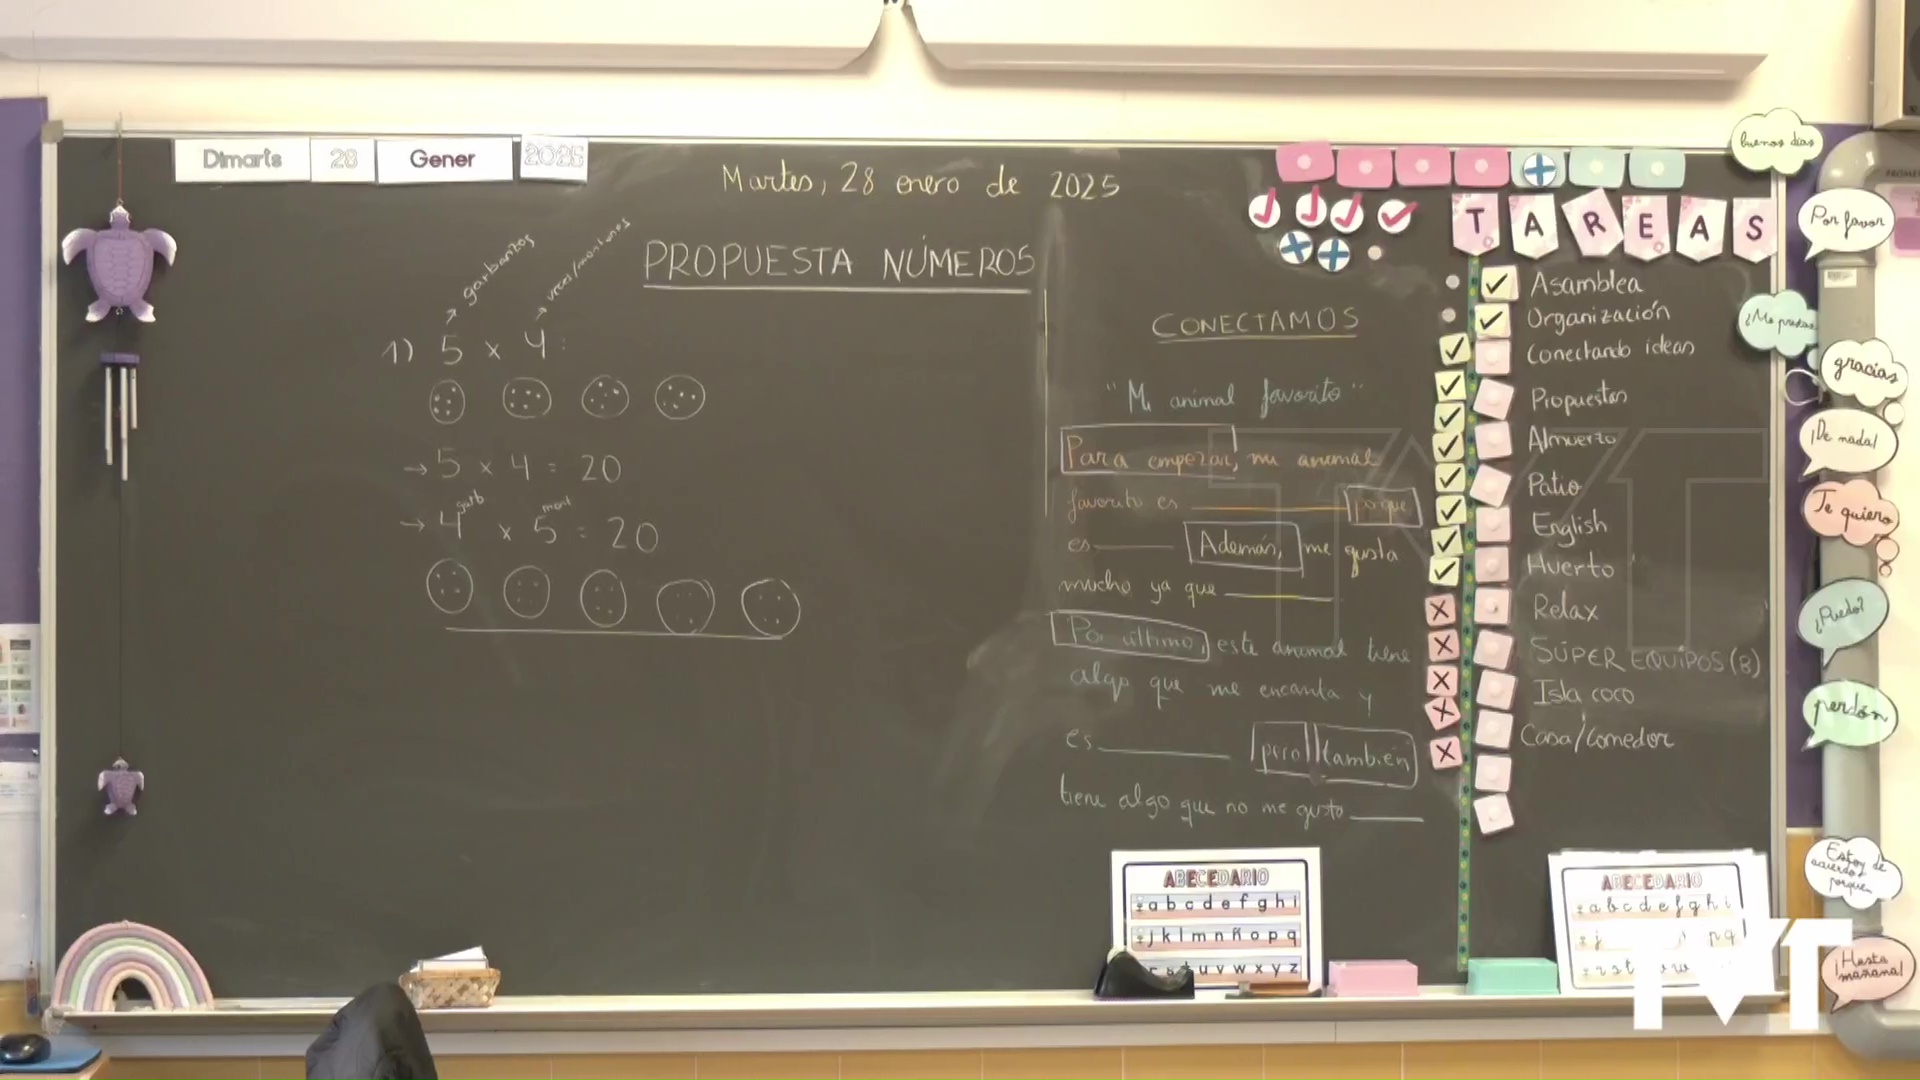 Dimarts 28 Gener 2025
Martes, 28 enero de 2025
PROPUESTA NÚMEROS
garbanzos
veces/montones
1) 5 x 4 =
→ 5 x 4 = 20
garb mont
→ 4 x 5 = 20
CONECTAMOS
"Mi animal favorito"
Para empezar, mi animal
favorito es porque
es Además, me gusta
mucho ya que
Por último, este animal tiene
algo que me encanta y
es pero también
tiene algo que no me gusto
TAREAS
Asamblea
Organización
Conectando ideas
Propuestas
Almuerzo
Patio
English
Huerto
Relax
SÚPER EQUIPOS (B)
Isla coco
Casa/Comedor
buenos días
Por favor
gracias
¡De nada!
Te quiero
¿Puedo?
perdón
Estoy de
acuerdo
porque...
¡Hasta
mañana!
ABECEDARIO
a b c d e f g h i
j k l m n ñ o p q
r s t u v w x y z
ABECEDARIO
a b c d e f g h i
TVT